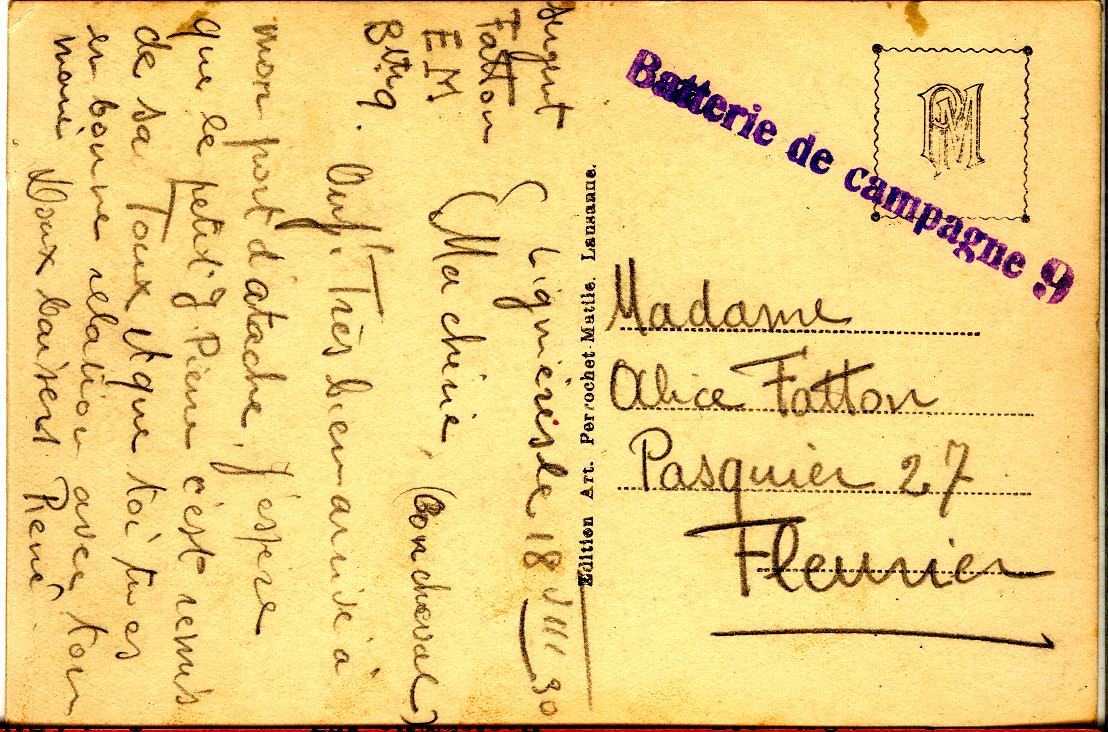 Sergent
Fatton
EM
Bttr 9.
Lignières le 18 VIII 30
Ma chérie, (Boncheval)
Ouf! Très bien arrivé à
mon port d'atache, j'espère
que le petit J. Pierre c'est remis
de sa Toux et que toi tu es
en bonne relation avec ton
mari Doux baisers René
Edition Art. Perrochet-Matile. Lausanne.
PM
Batterie de campagne 9
Madame
Alice Fatton
Pasquier 27
Fleurier